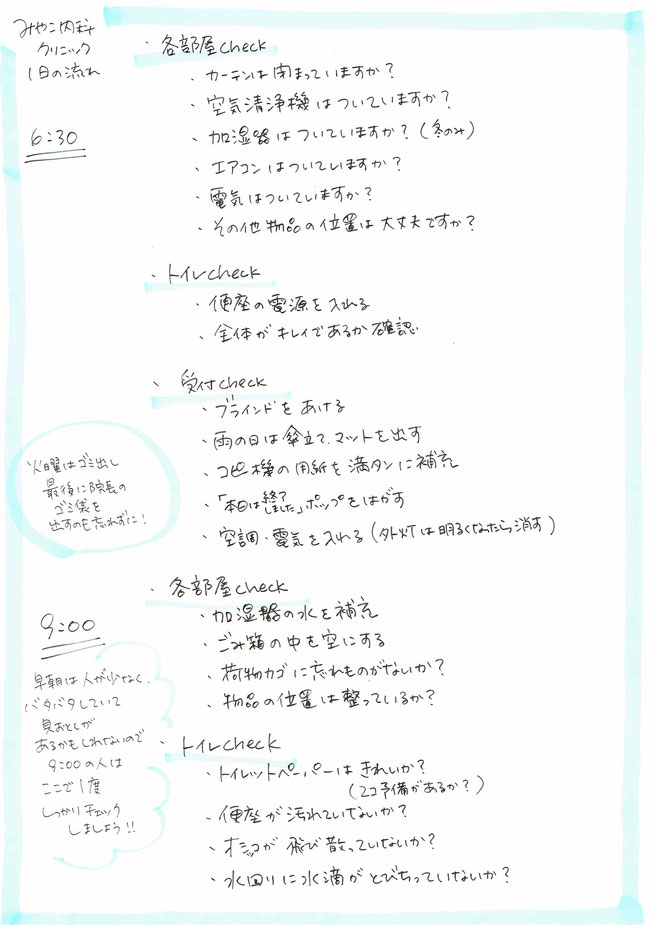 みやこ内科
クリニック
1日の流れ
6:30
・各部屋check
・カーテンは閉まっていますか?
・空気清浄機はついていますか?
・加湿器はついていますか?(冬のみ)
・エアコンはついていますか?
・電気はついていますか?
・その他物品の位置は大丈夫ですか?
・トイレcheck
・便座の電源を入れる
・全体がキレイであるか確認
・受付check
・ブラインドをあける
・雨の日は傘立て、マットを出す
・コピー機の用紙を満タンに補充
・「本日は終了しました」ポップをはがす
・空調・電気を入れる(外灯は明るくなったら消す)
火曜はゴミ出し
最後に院長の
ゴミ袋を
出すのも忘れずに!
9:00
・各部屋check
・加湿器の水を補充
・ごみ箱の中を空にする
・荷物カゴに忘れものがないか?
・物品の位置は整っているか?
早朝は人が少なく、
バタバタしていて
見おとしが
あるかもしれないので
9:00の人は
ここで1度
しっかりチェック
しましょう!!
・トイレcheck
・トイレットペーパーはきれいか?
(2コ予備があるか?)
・便座が汚れていないか?
・オシッコが飛び散っていないか?
・水回りに水滴がとびちっていないか?